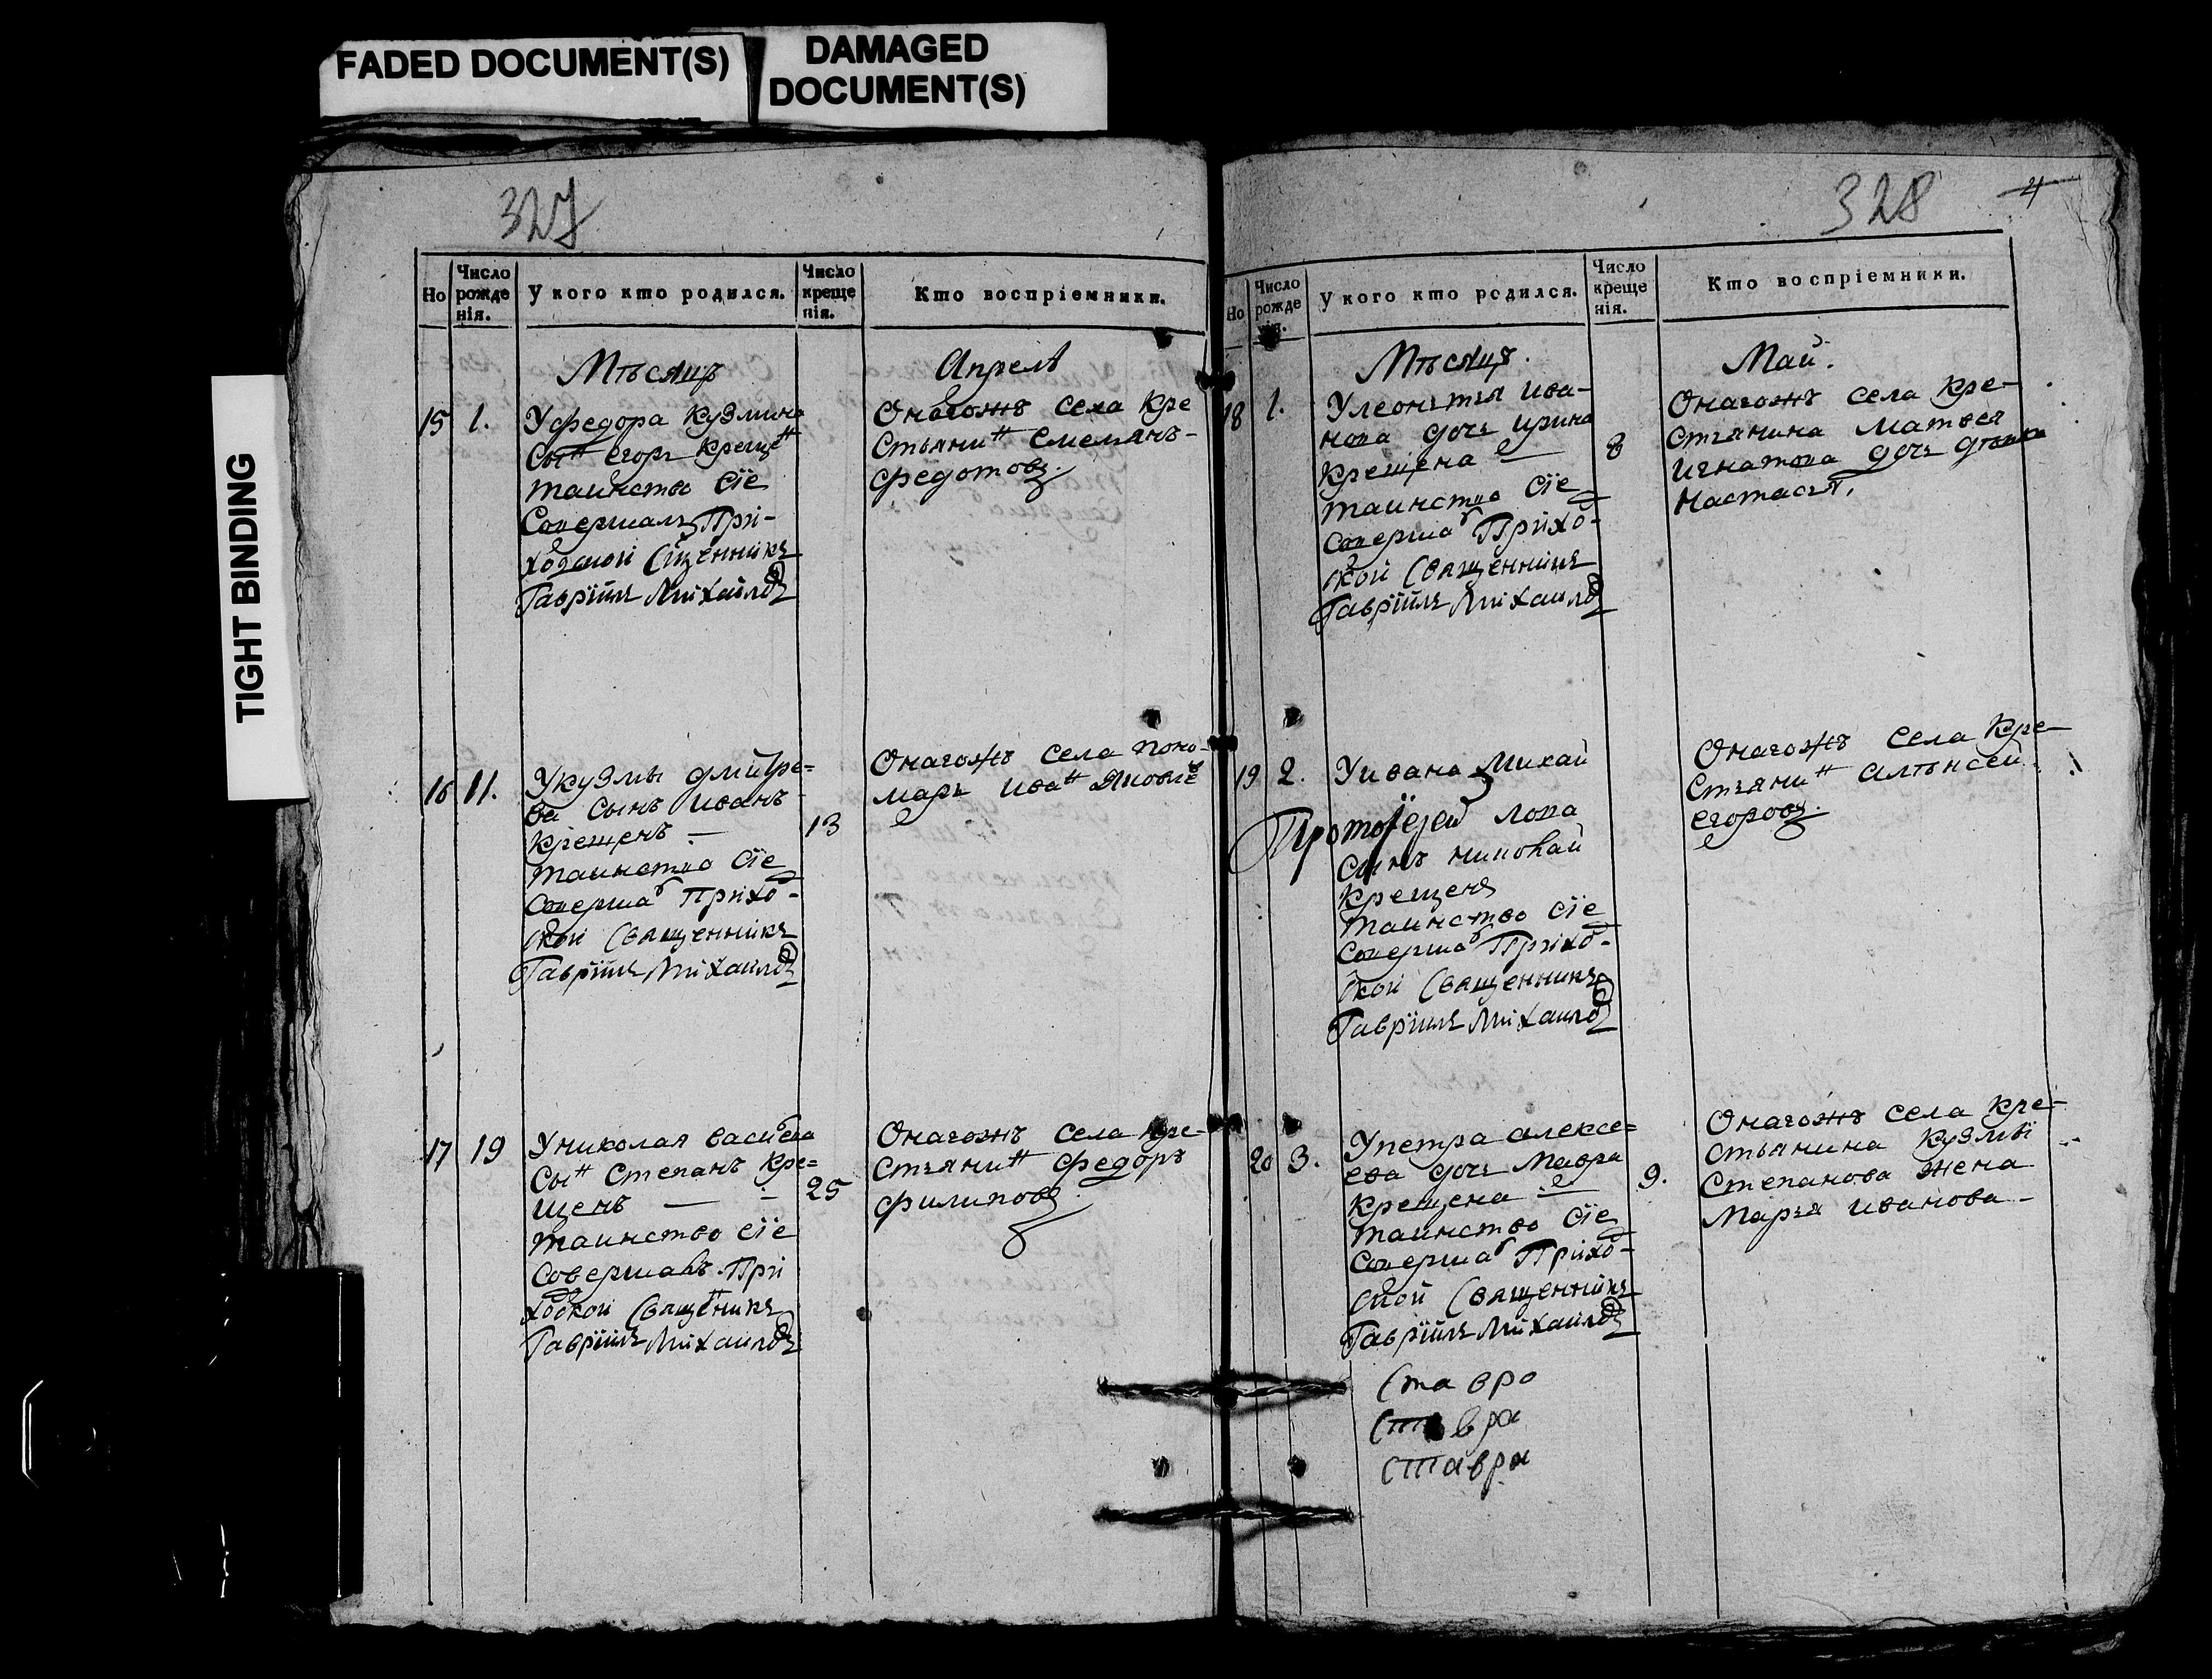 FADED DOCUMENT(S)
DAMAGED
DOCUMENT(S)
TIGHT BINDING
327
Но
Число
рожде
нія.
У кого кто родился.
Число
креще
нія.
Кто воспріемники.
Мѣсяцъ
Апрель
15
1.
Уфедора Кузмина
Сын егоръ крещен
таинство сіе
Совершалъ При-
ходской Сщенникъ
Гавріилъ Михайлов
Онагожъ села Кре
стьянин емельянъ
федотовъ.
16
11.
Укузмы дмитре=
ва сынъ иванъ
крещенъ —
13
таинство сіе
Соверша Прихо-
ской Священникъ
Гавріилъ Михайлов
Онагожъ села поно-
марь иван
17
19
Униколая васильева
сын Степанъ кре=
щенъ —
25
таинство сіе
Совершалъ При
ходской Священникъ
Гавріилъ Михайлов
Онагожъ села кре-
стьянин федоръ
филиповъ
328
4
Но
Число
рожде
нія.
У кого кто родился.
Число
креще
нія.
Кто воспріемники.
Мѣсяцъ.
Май.
18
1.
Улеонтья ива-
нова дочь ирина
крещена —
8
таинство сіе
Соверша Прихо-
ской Священникъ
Гавріилъ Михайлов
Онагожъ села кре-
стьянина матвея
игнатова дочь девка
настасья.
19
2.
Уивана Михай
Протоіерей
лова
сынъ николай
крещенъ
таинство сіе
Соверша Прихо-
ской Священникъ
Гавріилъ Михайлов
Онагожъ села кре-
стьянин алѣксей
егоровъ.
20
3.
Упетра алексе=
ева дочь мавра
крещена —
9.
таинство сіе
Соверша Прихо-
ской Священникъ
Гавріилъ Михайлов
Онагожъ села кре-
стьянина кузмы
степанова жена
марья иванова
Ставро
Ставро
Ставро